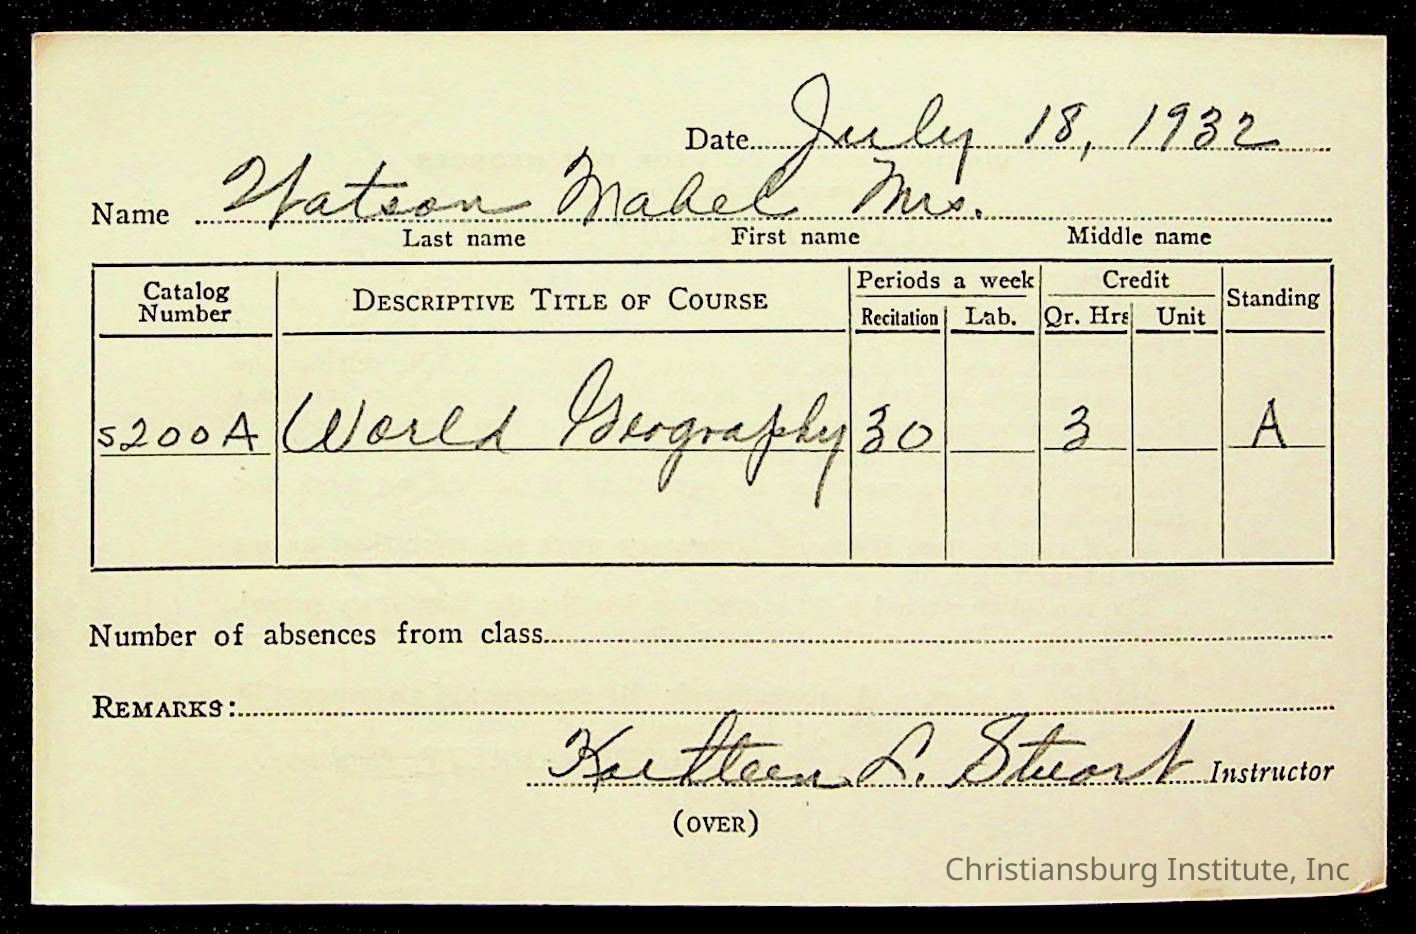 Date July 18, 1932
Name Watson Mabel Mrs.
Last name First name Middle name
Catalog Number DESCRIPTIVE TITLE OF COURSE Periods a week Credit Standing
Recitation Lab. Qr. Hrs Unit
S200A World Geography 30 3 A
Number of absences from class
REMARKS:
Kathleen L. Stuart Instructor
(OVER)
Christiansburg Institute, Inc